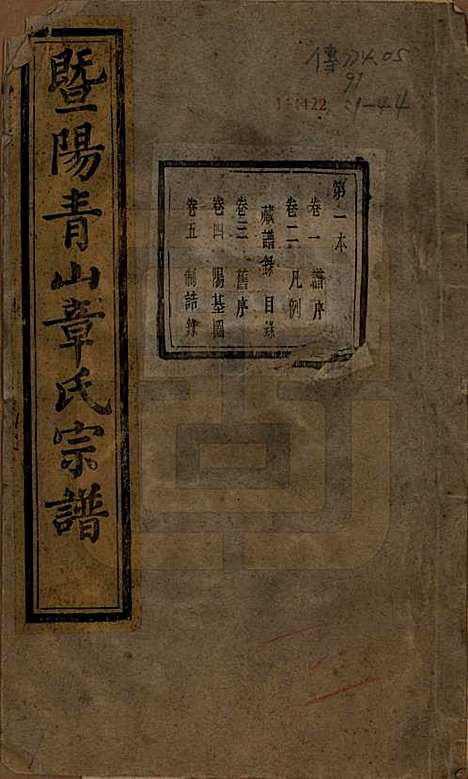 暨陽青山章氏宗譜
傳 774.05
91
111122 :1-44
第一本
卷一 譜序
卷二 凡例
藏譜錄 目錄
卷三 舊序
卷四 陽基圖
卷五 制誥錄